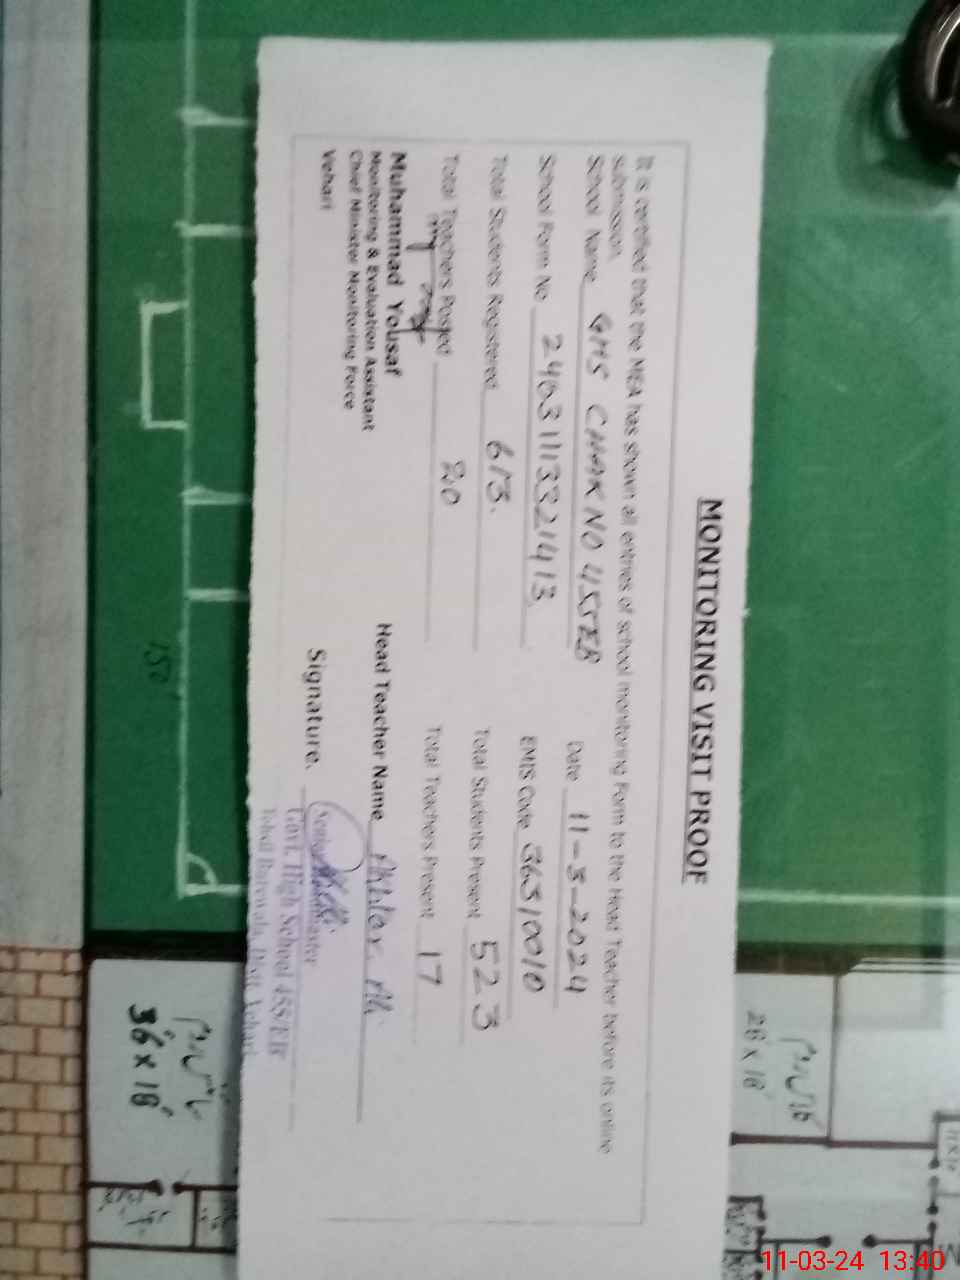 MONITORING VISIT PROOF
It is certified that the MEA has shown all entries of school monitoring Form to the Head Teacher before its online
submission.
School Name GHS CHAK NO 455EB Date 11-3-2024
School Form No 24031113321413 EMIS Code 36310010
Total Students Registered 613. Total Students Present 523
Total Teachers Posted 20 Total Teachers Present 17
Muhammad Yousaf
Monitoring & Evaluation Assistant
Chief Minister Monitoring Force
Vehari
Head Teacher Name Akhtar Ali
Signature.
Senior Headmaster
Govt. High School 455/EB
Tehsil Burewala, Distt. Vehari
150
36 x 18
28 x 18
11-03-24 13:40